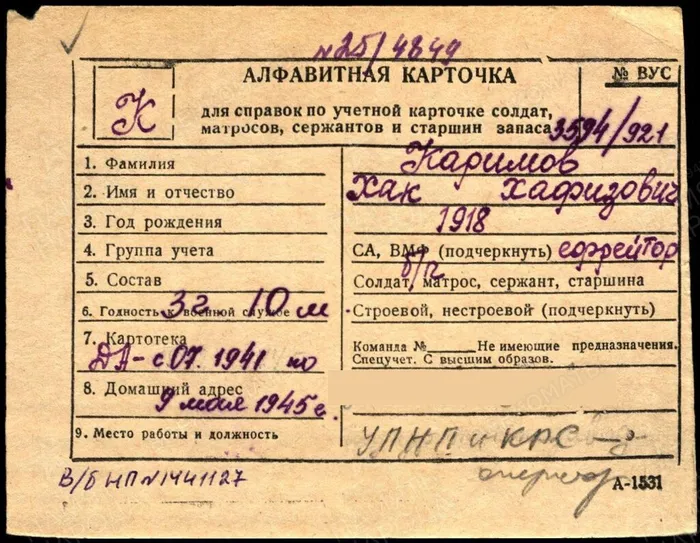 №25/4849
АЛФАВИТНАЯ КАРТОЧКА
№ ВУС
К
для справок по учетной карточке солдат,
матросов, сержантов и старшин запаса
3594/921
1. Фамилия
Каримов
2. Имя и отчество
Хак Хафизович
3. Год рождения
1918
4. Группа учета
СА, ВМФ (подчеркнуть) ефрейтор
5. Состав
б/п
Солдат, матрос, сержант, старшина
6. Годность к военной службе
3г. 10 м
Строевой, нестроевой (подчеркнуть)
7. Картотека
Команда № Не имеющие предназначения.
Спецучет. С высшим образов.
ДА - с 07. 1941 по
8. Домашний адрес
9 мая 1945 г.
9. Место работы и должность
УПНП и КРС
В/б НП №1441127
оператор
А-1531